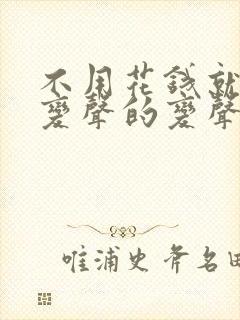 不用花錢就
變聲的變聲
唯浦史斧名田